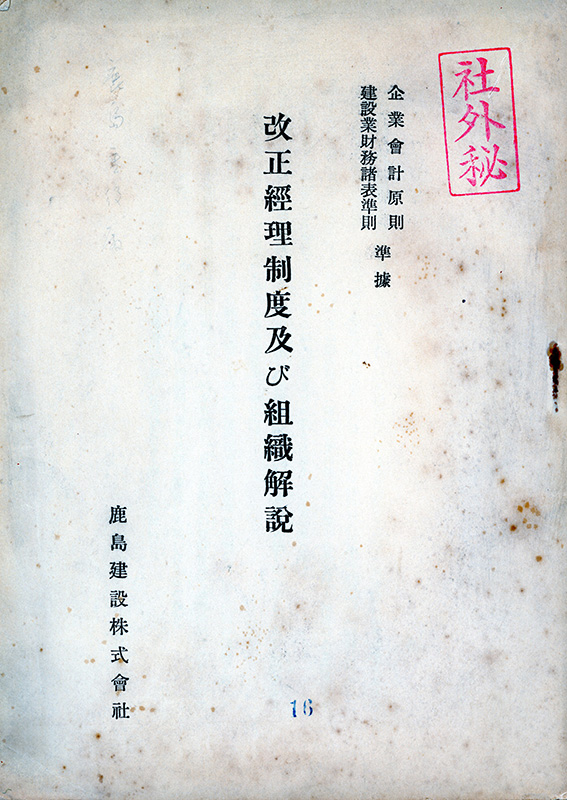 社外秘
企業會計原則
建設業財務諸表準則
準據
改正經理制度及び組織解說
鹿島建設株式會社
16